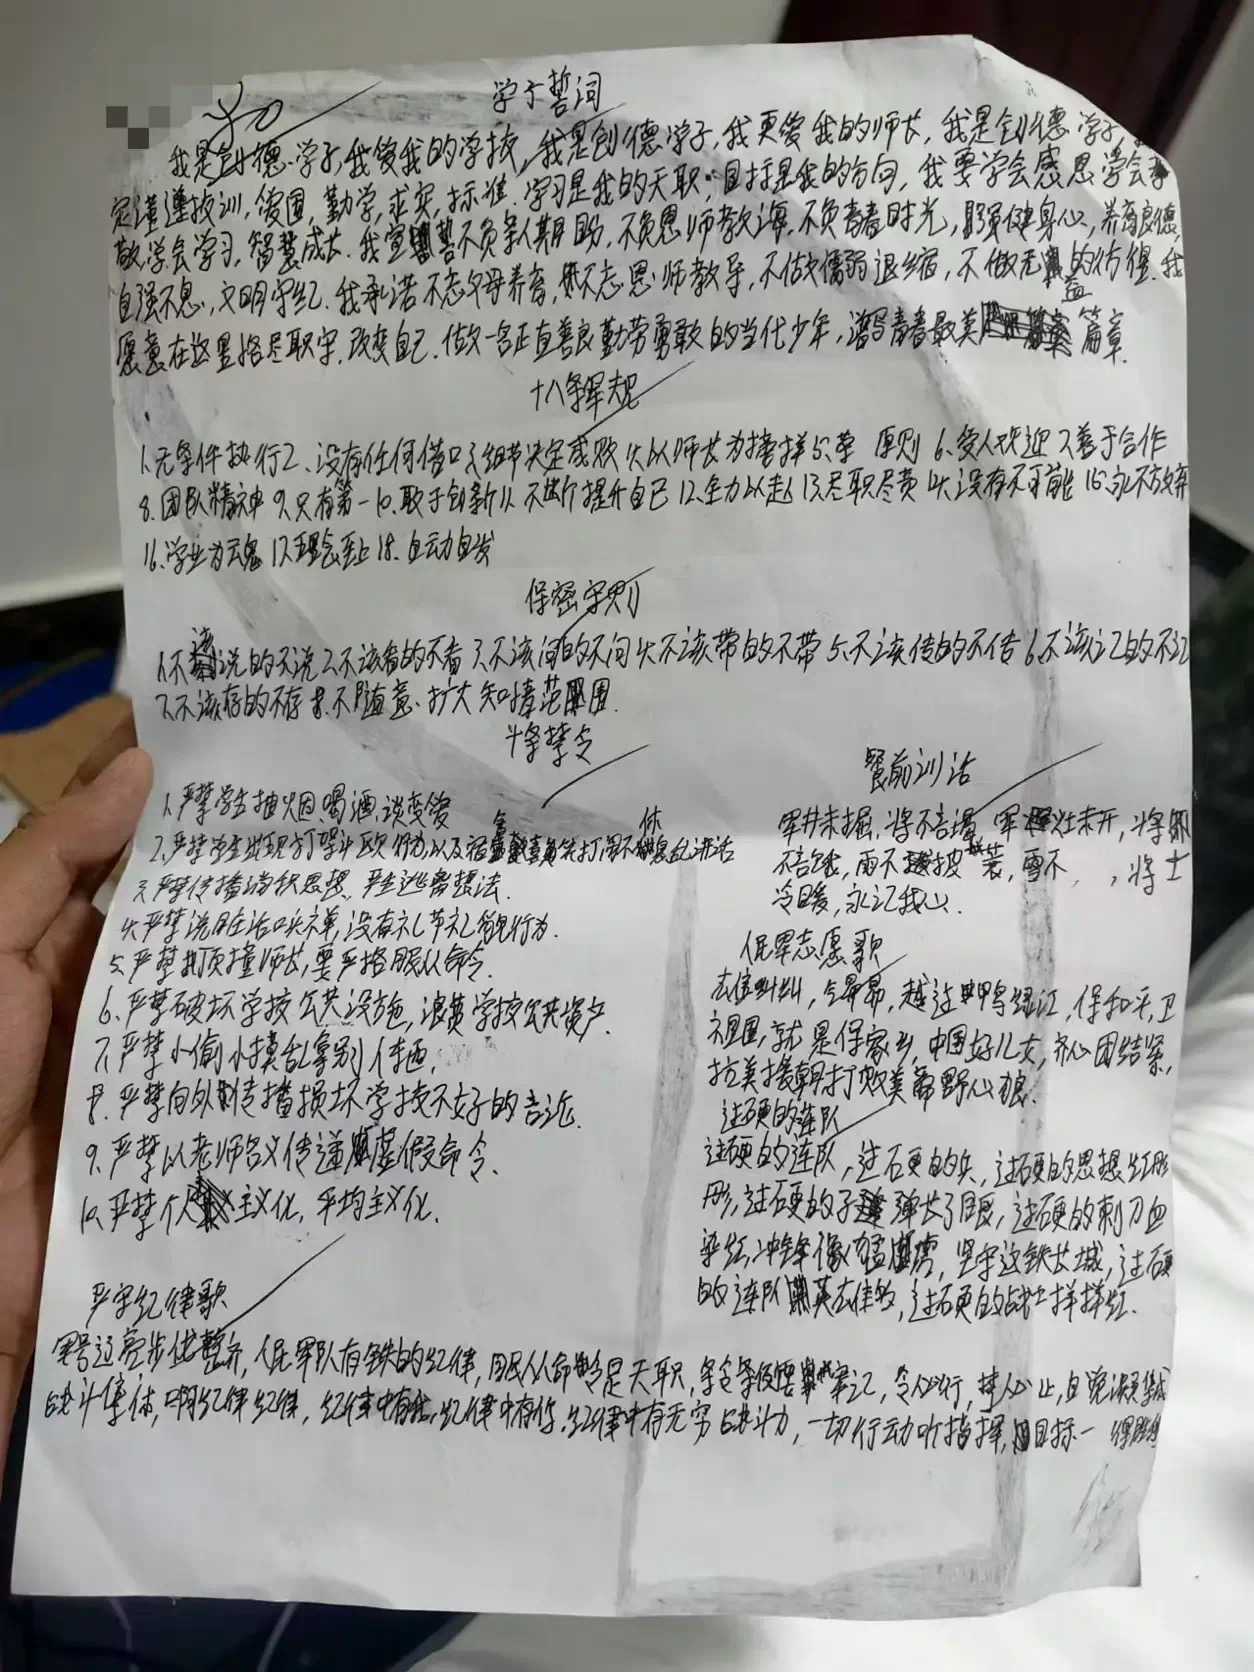 学子誓词
我是创德学子,我爱我的学校,我是创德学子,我更爱我的师长,我是创德学子,
定谨遵校训,爱国,勤学,求实,标准.学习是我的天职,目标是我的方向,我要学会感恩学会孝
敬,学会学习,智慧成长.我宣誓不负亲人期盼,不负恩师教诲,不负青春时光,强健身心,养育良德,
自强不息,文明守纪.我承诺不忘父母养育,不忘恩师教导,不做懦弱退缩,不做无益的彷徨.我
愿意在这里恪尽职守,改变自己.做一名正直善良勤劳勇敢的当代少年,谱写青春最美篇章.
十八条军规
1.无条件执行2、没有任何借口3.细节决定成败4.以师长为榜样5.荣 原则 6.受人欢迎 7.善于合作
8.团队精神 9.只有第一10.敢于创新11.不断提升自己 12.全力以赴13.尽职尽责 14.没有不可能 15.永不放弃
16.学业为魂 17.理念至上 18.自动自发
保密守则
1.不该说的不说 2.不该看的不看 3.不该问的不问 4.不该带的不带 5.不该传的不传 6.不该记的不记
7.不该存的不存 8.不随意扩大知情范围.
十条禁令
1.严禁学生抽烟、喝酒,谈恋爱
2.严禁学生出现打架斗殴行为,以及宿舍打闹不休息乱讲话
3.严禁传播消极思想、产生逃离想法.
4.严禁说脏话口头不单,没有礼节礼貌行为.
5.严禁顶撞师长,要严格服从命令.
6.严禁破坏学校公共设施,浪费学校公共资产.
7.严禁小偷小摸乱拿别人东西.
8.严禁向外传播损坏学校不好的言论.
9.严禁以老师名义传递虚假命令.
10.严禁个人主义化,平均主义化.
餐前训话
军井未掘,将不言渴,军灶未开,将
不言饿,雨不披蓑,雪不 ,将士
冷暖,永记我心.
人民军志愿歌
雄纠纠,气昂昂,越过鸭绿江,保和平,卫
祖国,就是保家乡,中国好儿女,齐心团结紧,
抗美援朝打败美帝野心狼.
过硬的连队
过硬的连队,过硬的兵,过硬的思想红彤
彤,过硬的子弹长了眼,过硬的刺刀血
染红,冲锋像猛虎,坚守这铁长城,过硬
的连队英雄的,过硬的战士样样红.
严守纪律歌
军号嘹亮步伐整齐,人民军队有铁的纪律,服从命令是天职,条令条例要牢记,令必行,禁必止,自觉凝聚成
战斗集体,啊纪律纪律,纪律中有我,纪律中有你,纪律中有无穷战斗力,一切行动听指挥,目标一 得胜利